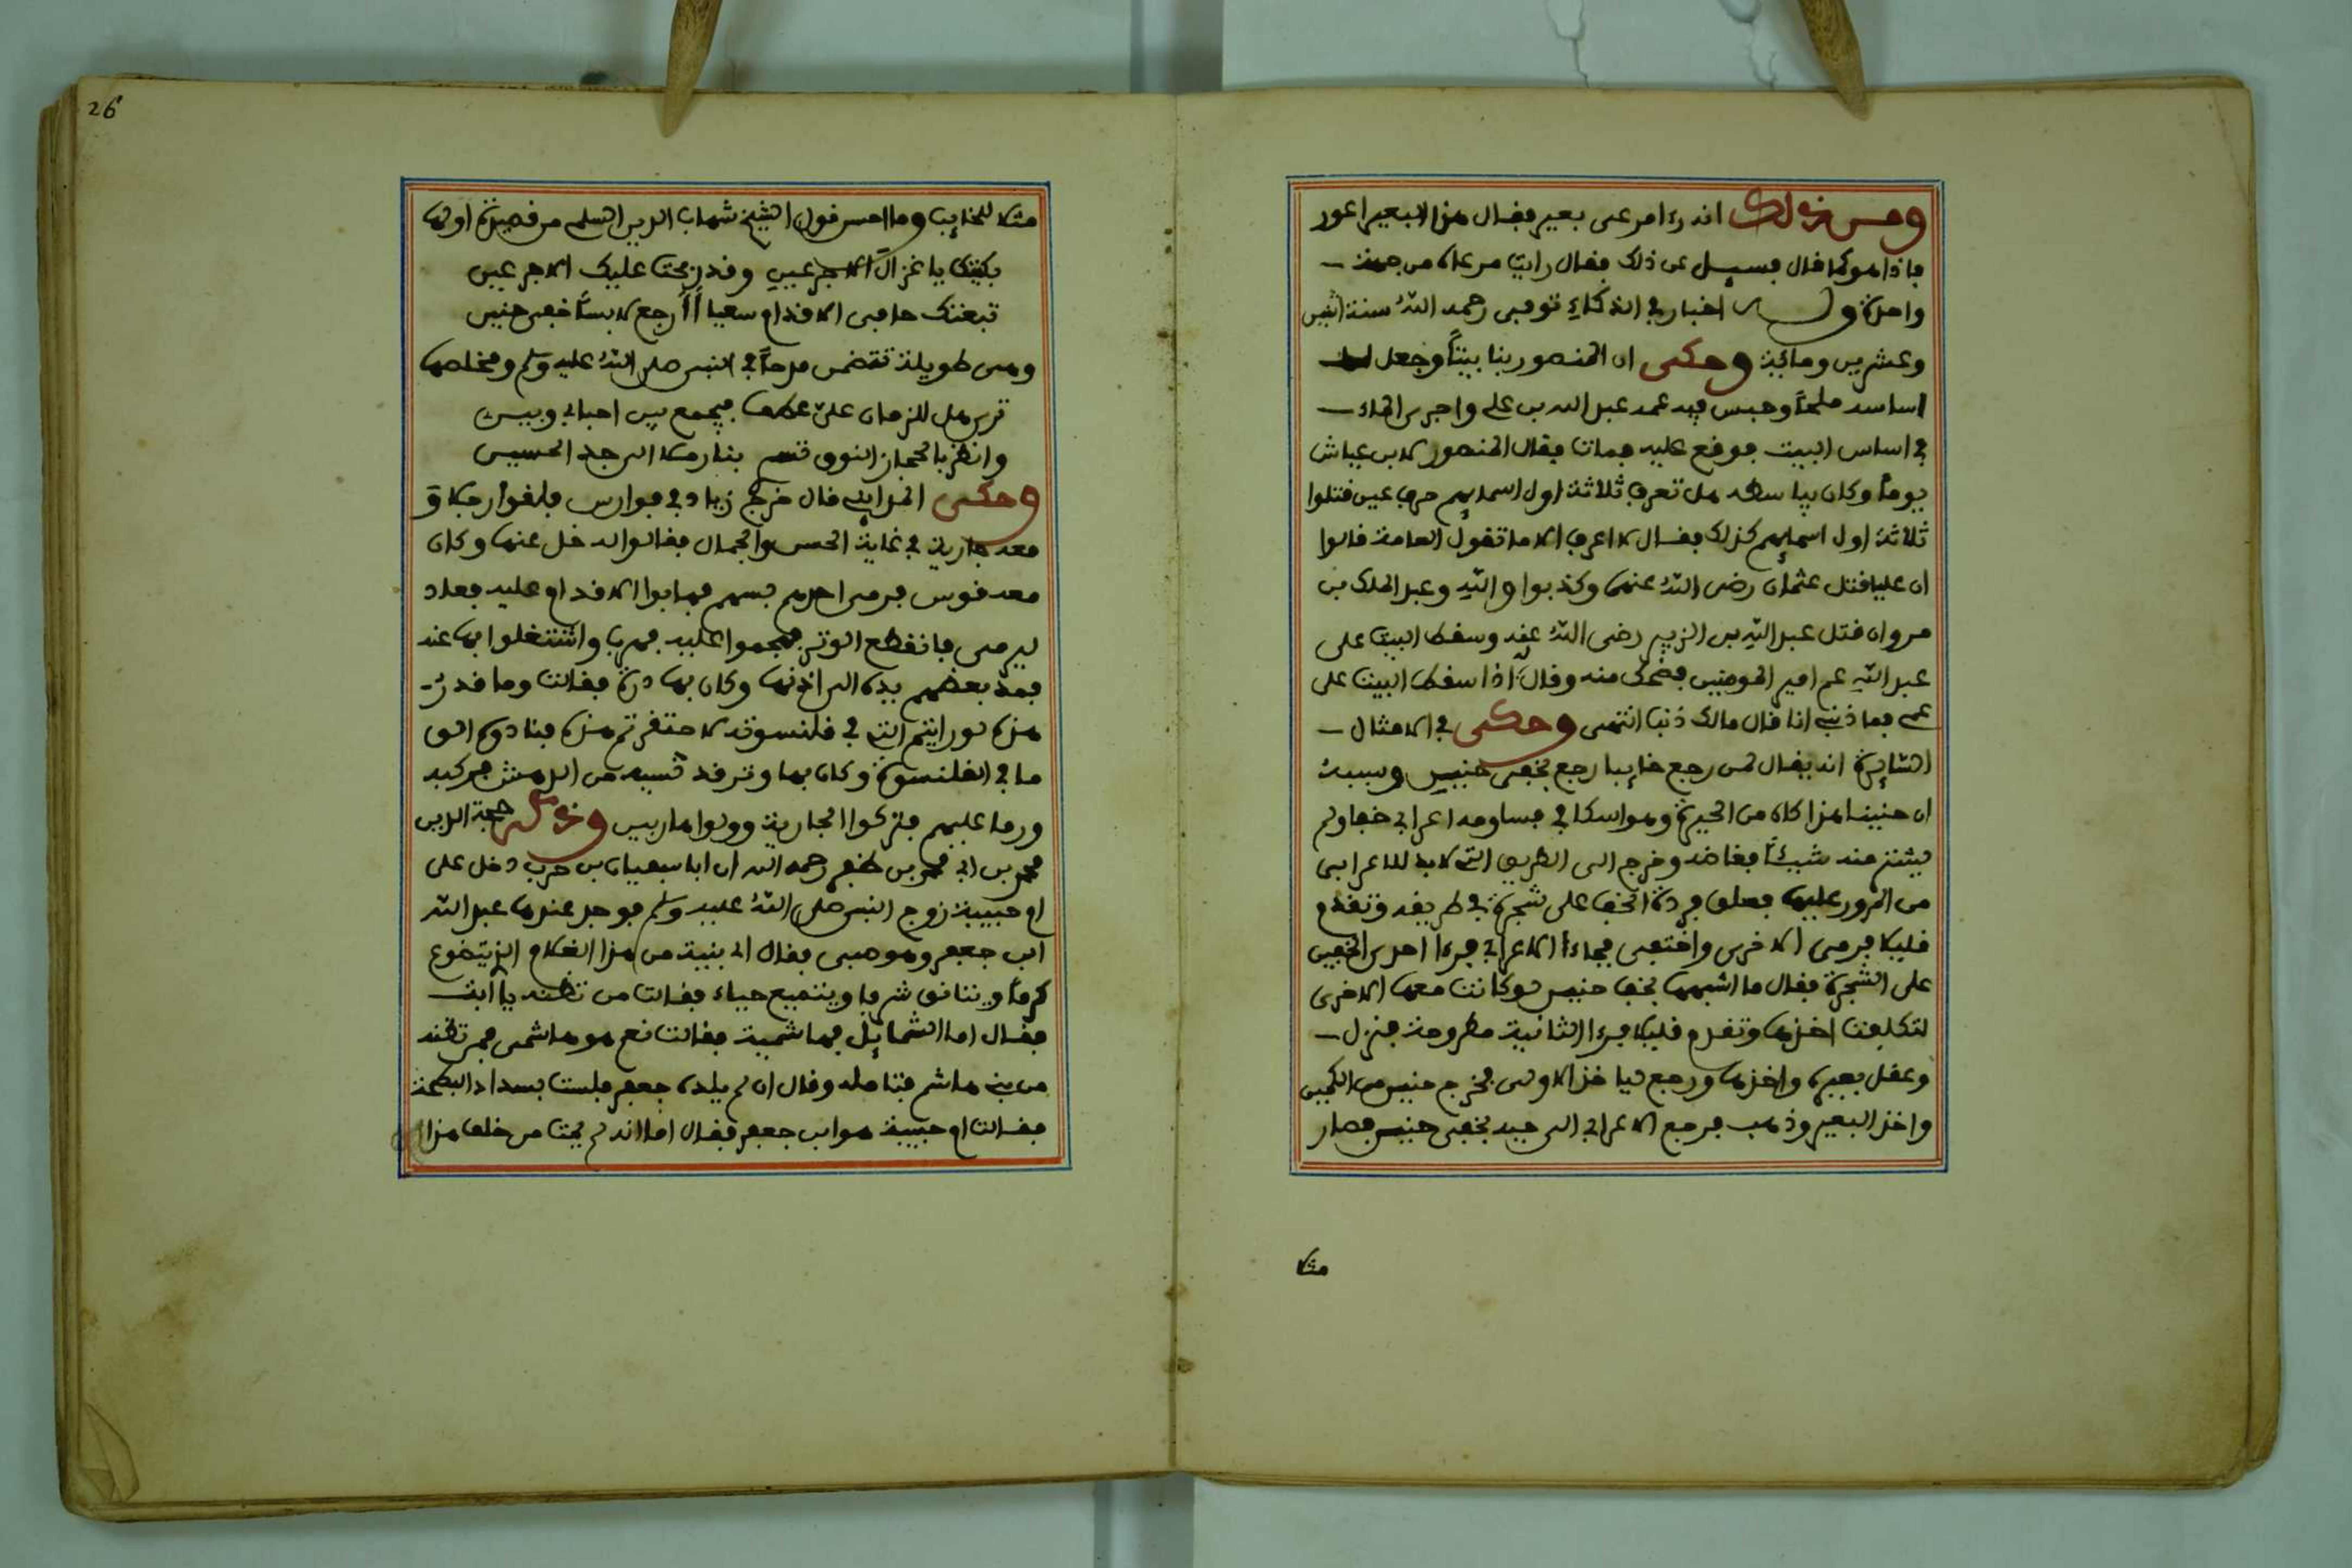 ومن ذلك انه رءا مرعى بعير فقال هذا البعير اعور
فاذا هو كما قال فسيل عن ذلك فقال رايت مرعاه من جهة
واحدة و اخبار في الذكاء توفى رحمه الله سنة اثنين
وعشرين ومائة وحكى ان المنصور بنا بيتا وجعل
اساسه ملحا وحبس فيه عمه عبد الله بن علي واجرى الماء
في اساس البيت فوقع عليه فمات فقال المنصور لابن عياش
يوما وكان يباسطه هل تعرف ثلاثة اول اسمايهم حرف عين قتلوا
ثلاثة اول اسمايهم كذلك فقال لا اعرف الا ما تقول العامة قالوا
ان عليا قتل عثمان رضى الله عنهما وكذبوا والله وعبد الملك بن
مروان قتل عبد الله بن الزبير رضى الله عنه وسقط البيت على
عبد الله عم امير المومنين فضحك منه وقال اذا سقط البيت على
عمى فما ذنبي انا قال مالك ذنب انتهى وحكى في الامثال
السايرة انه يقال لمن رجع خايبا رجع بخفى حنين وسببه
ان حنينا هذا كان من الحيرة وهو اسكافي فساومه اعرابي خفا ولم
يشتر منه شيئا فغاضه وخرج الى الطريق التي لا بد للاعرابى
من المرور عليها فعلق فردة الخف على شجرة في طريقه وتقدم
قليلا فرمى الاخرى واختفى فجاء الاعرابي فرءا احدى الخفين
على الشجرة فقال ما اشبهها بخف حنين لو كانت معها الاخرى
لتكلفت اخذها وتقدم قليلا فرءا الثانية مطروحة فنزل
وعقل بعيره واخذها ورجع ليا خذ الاولى فخرج حنين من الكمين
واخذ البعير وذهب فرجع الاعرابي الى حيه بخفى حنين فصار
مثلا
26
مثلا للخايب وما احسن قول الشيخ شهاب الدين السلمى من قصيدة اولها
بكيتك يا غزال الاجرعين وقد نحت عليك الاجرعين
تبعتك حافي الاقدام سعيا أأرجع لابسا خفى حنين
وهى طويلة تتضمن مدحا في النبى صلى الله عليه وسلم ومخلصها
ترى هل للزمان على عطف فيجمع بين احبابي وبينى
وانظر بالحجاز النوق تسرى بنا رملا الى جد الحسين
وحكى المدايني قال خرج زياد في فوارس فلقوا رجلا و
معه جارية في غاية الحسن والجمال فقالوا له خل عنها وكان
معه قوس فرمى احدهم بسهم فهابوا الاقدام عليه فعاد
ليرمى فانقطع الوتر فهجموا عليه فهرب واشتغلوا بها عنه
فمد بعضهم يده الى اذنها وكان بها درة فقالت وما قدر
هذه لو رايتم التي في قلنسوته لاحتقرتم هذه فنادوه الق
ما في القلنسوة وكان بها وتر قد نسيه من الدهش فركبه
ورما عليهم فتركوا الجارية وولوا هاربين وذكر حجة الدين
محمد بن ابي محمد بن ظفر رحمه الله ان ابا سفيان بن حرب دخل على
ام حبيبة زوج النبى صلى الله عليه وسلم فوجد عندها عبد الله
ابن جعفر وهو صبى فقال اى بنية من هذا الغلام الذى يتضوع
كرما ويتانق شرفا ويتميع حياء فقالت من تظنه يا ابت
فقال اما الشمايل فهاشمية فقالت نعم هو هاشمى فمن تظنه
من بنى هاشم فتامله وقال ان لم يلده جعفر فلست بسداد البطحة
فقالت ام حبيبة هو ابن جعفر فقال اما انه لم يمت من خلف هذا